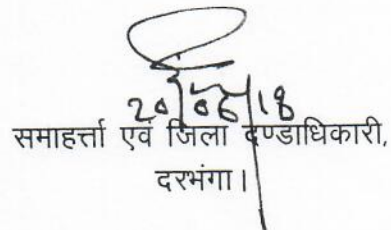 20/06/18
समाहर्त्ता एवं जिला दण्डाधिकारी,
दरभंगा।